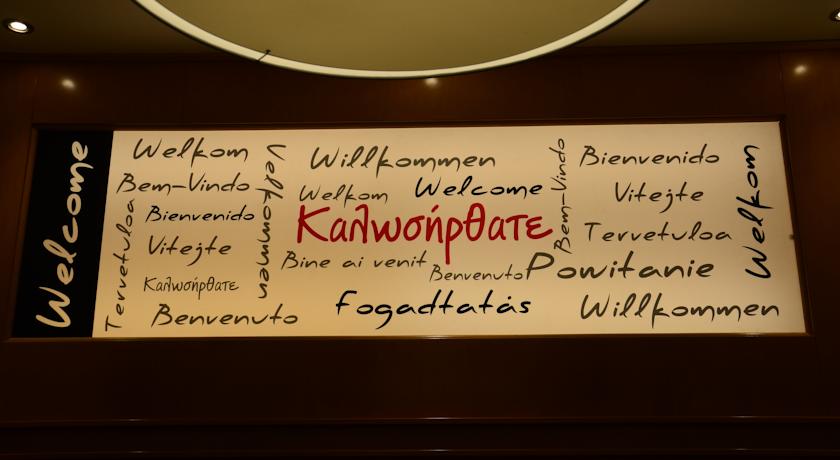 Welcome
Welkom
Bem-Vindo
Bienvenido
Vitejte
Καλωσήρθατε
Tervetuloa
Benvenuto
Velkommen
Willkommen
Welkom
Welcome
Καλωσήρθατε
Bine ai venit
Benvenuto
Fogadtatás
Bem-Vindo
Bienvenido
Vitejte
Tervetuloa
Powitanie
Willkommen
Welkom